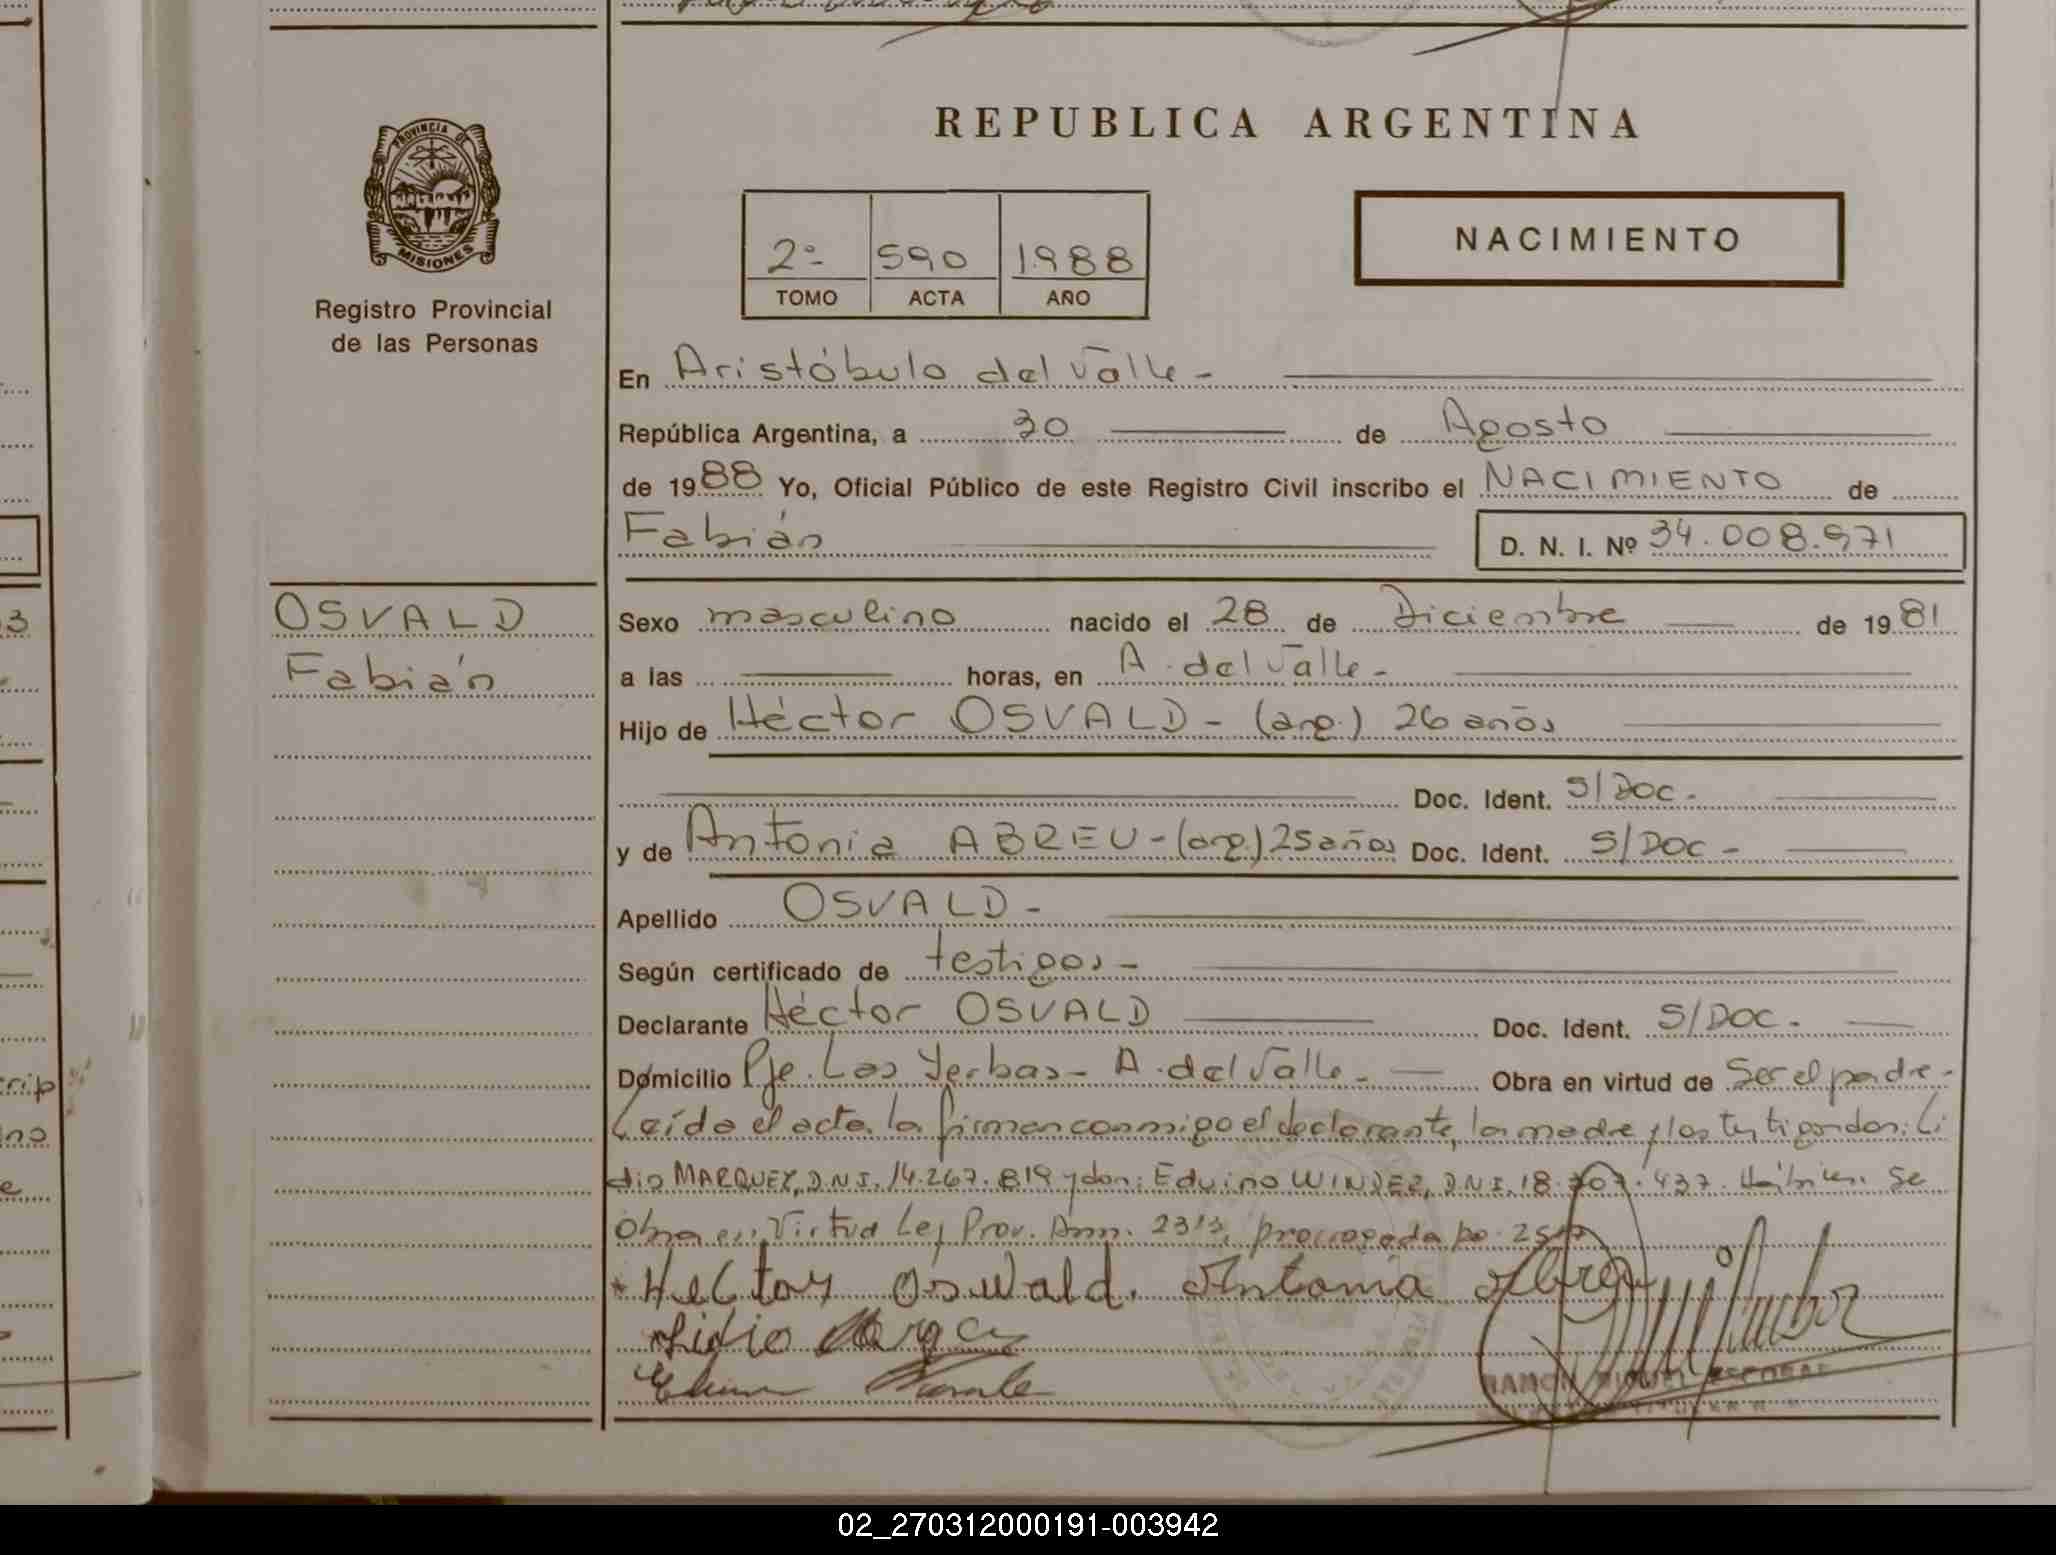 REPUBLICA ARGENTINA
PROVINCIA DE
MISIONES
Registro Provincial
de las Personas
2º 590 1988
TOMO ACTA AÑO
NACIMIENTO
En Aristóbulo del Valle -
República Argentina, a 30 de Agosto
de 1988 Yo, Oficial Público de este Registro Civil inscribo el NACIMIENTO de
Fabián D. N. I. Nº 34.008.971
OSVALD
Fabián
Sexo masculino nacido el 28 de Diciembre de 1981
a las horas, en A. del Valle -
Hijo de Héctor OSVALD - (arg.) 26 años
Doc. Ident. S/Doc -
y de Antonia ABREU - (arg.) 25 años Doc. Ident. S/Doc -
Apellido OSVALD -
Según certificado de testigos -
Declarante Héctor OSVALD Doc. Ident. S/Doc.
Domicilio Pje. Las Yerbas - A. del Valle - Obra en virtud de Ser el padre -
Leída el acta, la firman conmigo el declarante, la madre y los testigos don: Li
dio MARQUEZ, D.N.I. 14.267.819 y don: Eduino D.N.I. 18.707.437. Hábiles. Se
Obra en Virtud Ley Prov. 2313, prorrogada po
Hector Oswald. Antonia Abreu
Lidio
RAMON MIGUEL ESCOBAR
02_270312000191-003942